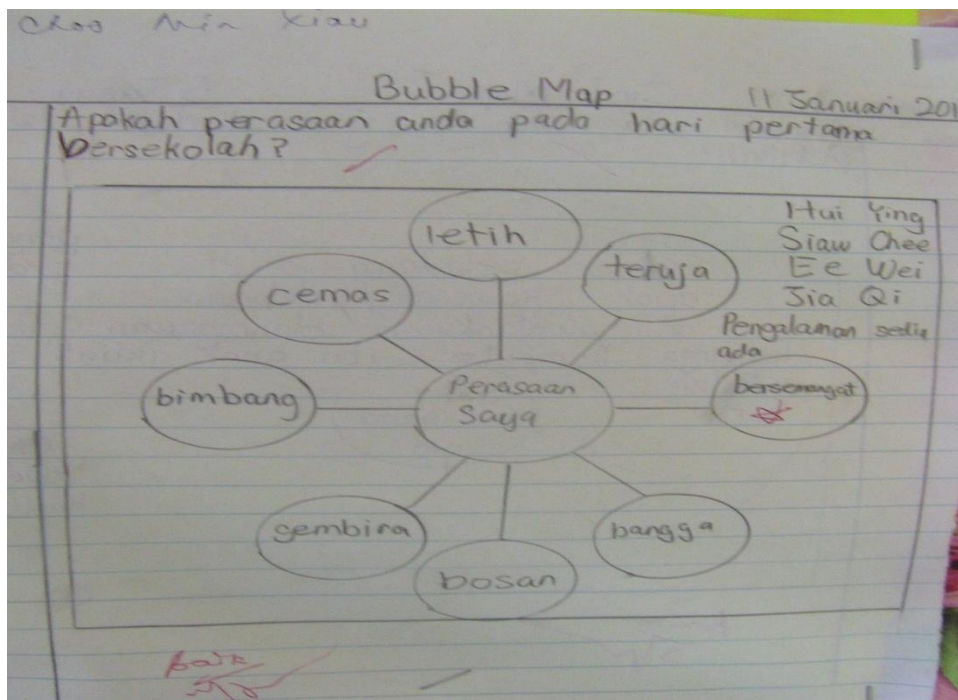 Choo Min Xiau
Bubble Map
11 Januari 201
Apakah perasaan anda pada hari pertama
bersekolah?
Hui Ying
Siaw Chee
Ee Wei
Jia Qi
Pengalaman sedia
ada
letih
teruja
cemas
bersemangat
bimbang
Perasaan
Saya
gembira
bangga
bosan
Baik